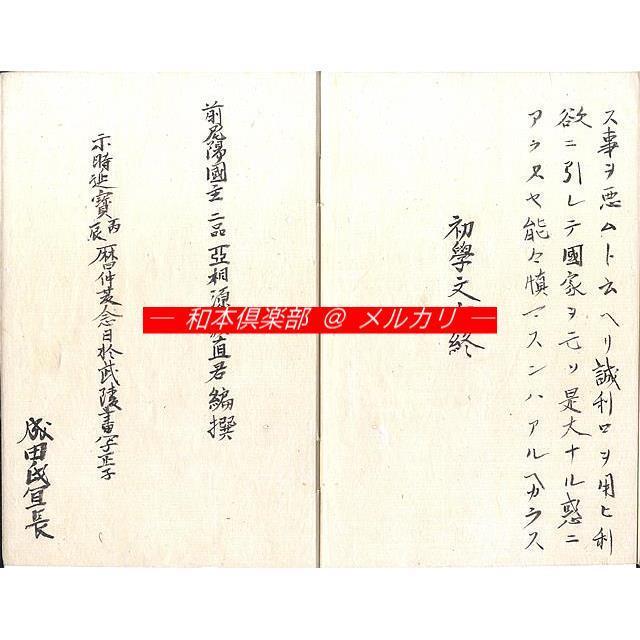 ス事ヲ悪ムト云ヘリ誠利口ヲ用ヒ利
欲ニ引レテ國家ヲ亡ソ是大ナル惑ニ
アラスヤ能々慎マスンハアルヘカラス
初學文 終
前尾陽國主二品亞相源 直君編撰
示時延寶丙辰暦仲 念日於武陵
成田氏宣長
— 和本倶楽部 @ メルカリ —